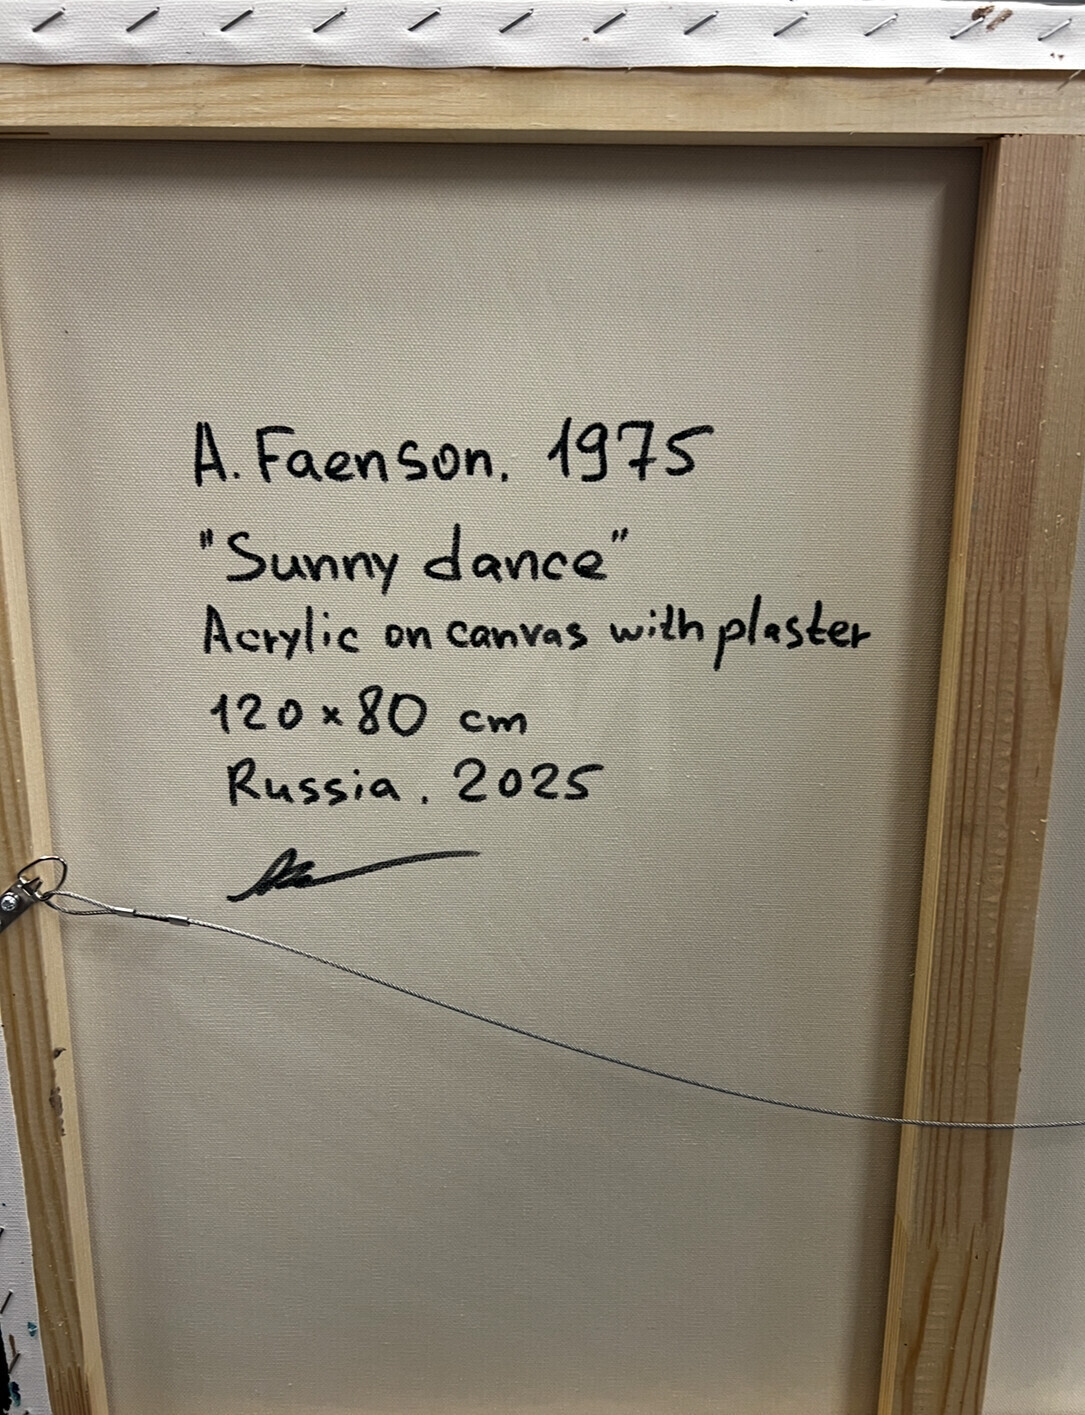 A. Faenson. 1975
"Sunny dance"
Acrylic on canvas with plaster
120 × 80 cm
Russia. 2025